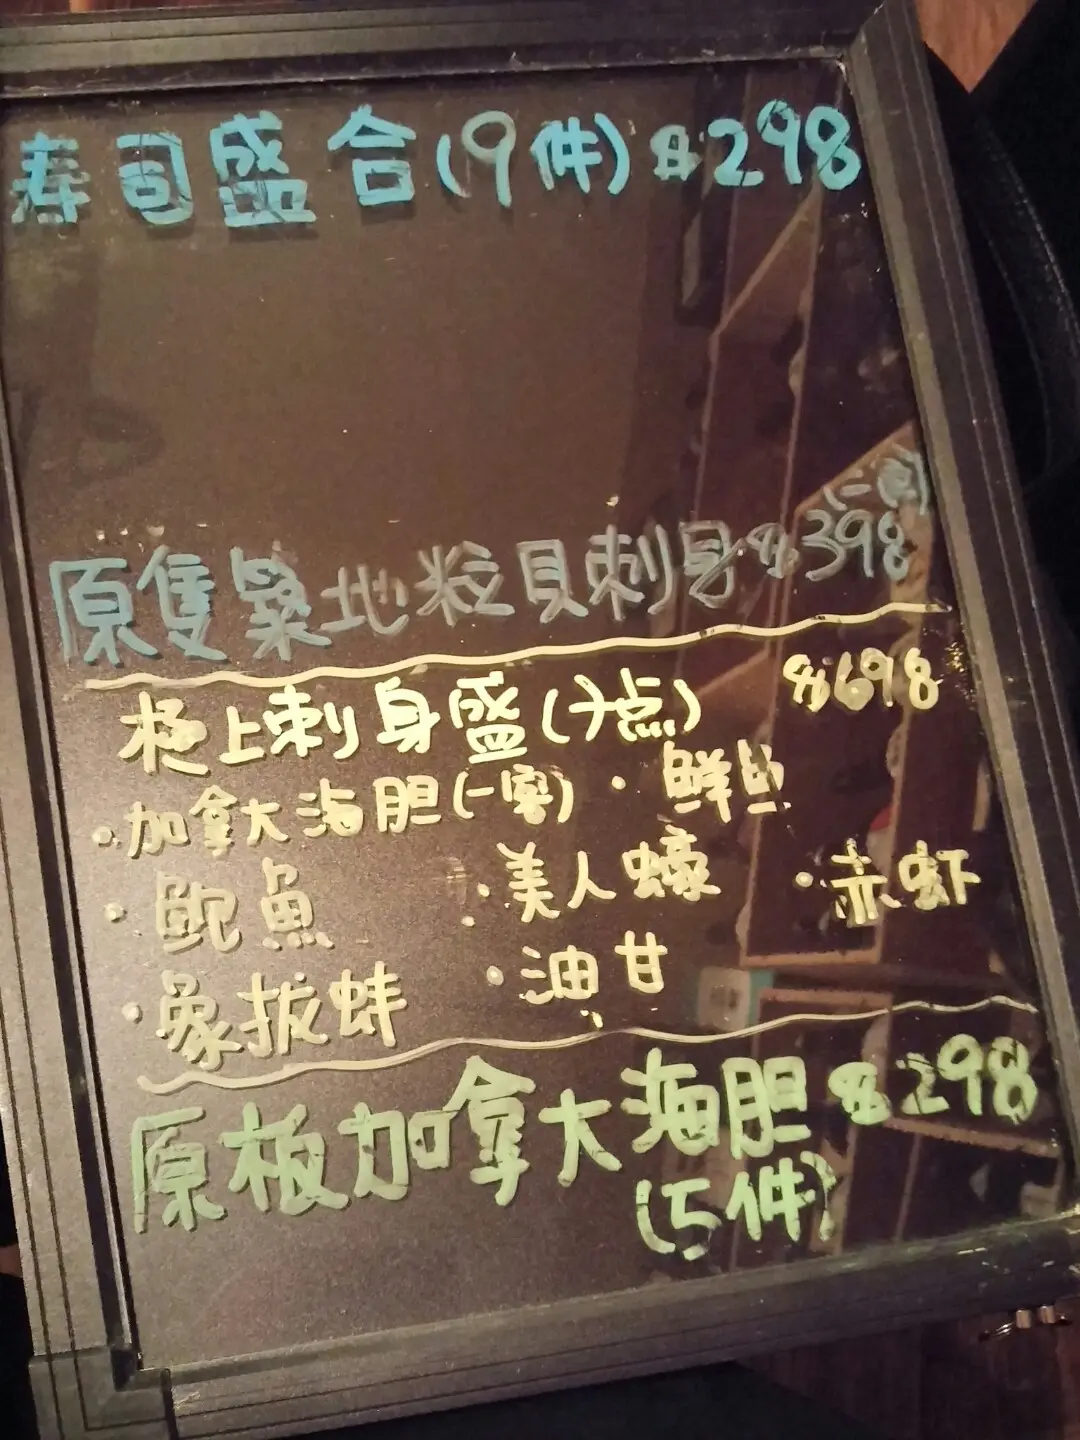 寿司盛合(9件)$298
(一隻)
原隻築地粒貝刺身$398
極上刺身盛(7点) $698
・加拿大海胆(一客) ・鮮魚
・鮑魚 ・美人蠔 ・赤虾
・象拔蚌 ・油甘
原板加拿大海胆$298
(5件)